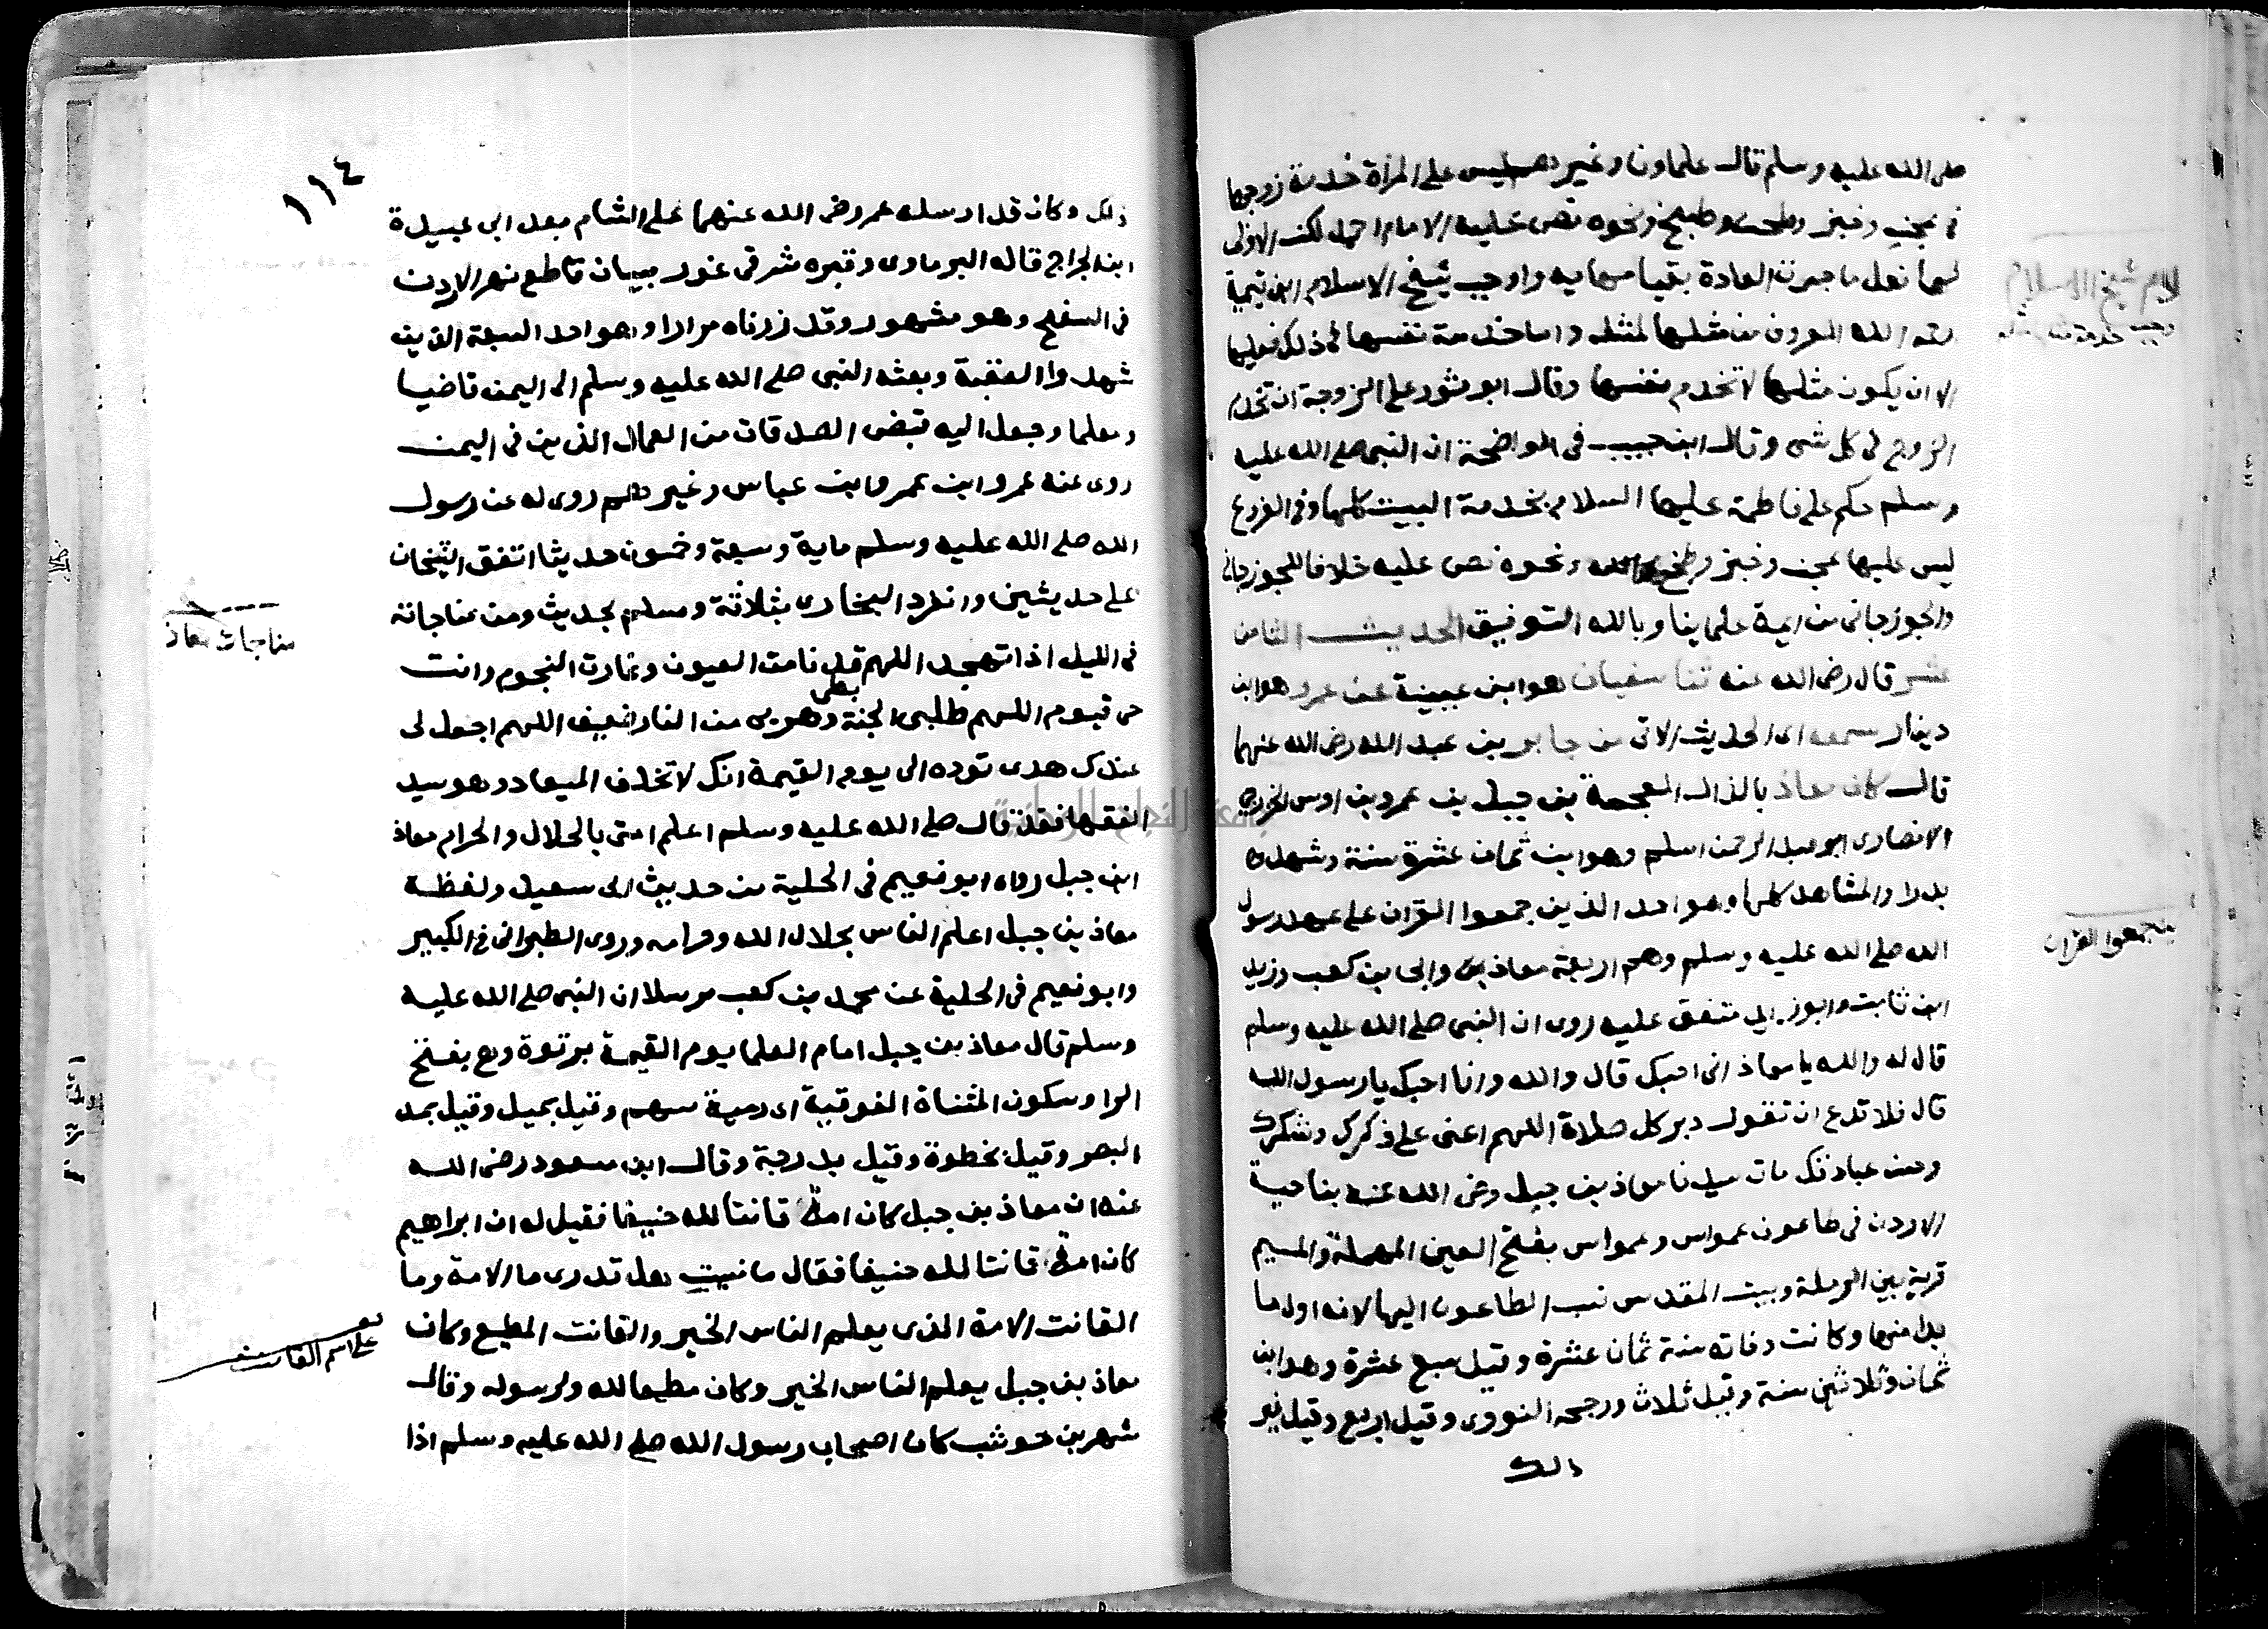 صلى الله عليه وسلم قال علماونا وغيرهم ليس على المراة خدمة زوجها
في عجن وخبز وطحن وطبخ ونحوه نص عليه الامام احمد لكن الاولى
لها فعل ما جرت العادة بقيامها به واوجب شيخ الاسلام ابن تيمية
رحمه الله المعروف من مثلها لمثله واما خدمة نفسها في ذلك فعليها
الا ان يكون مثلها لا تخدم نفسها وقال ابو ثور على الزوجة ان تخدم
الزوج في كل شي وقال ابن حبيب في الواضحة ان النبي صلى الله عليه
وسلم حكم على فاطمة عليها السلام بخدمة البيت كلها وفي الفروع
ليس عليها عجن وخبز وطبخ ونحوه نص عليه خلافا للجوزجاني
والجوزجاني من ايمة علماينا وبالله التوفيق الحديث الثامن
عشر قال رضي الله عنه ثنا سفيان هو ابن عيينة عن عمرو هو ابن
دينار سمعه اي الحديث الاتي من جابر بن عبد الله رضي الله عنهما
قال كان معاذ بالذال المعجمة بن جبل بن عمرو بن اوس الخزرجي
الانصاري ابو عبد الرحمن اسلم وهو ابن ثمان عشرة سنة وشهد
بدرا والمشاهد كلها وهو احد الذين جمعوا القران على عهد رسول
الله صلى الله عليه وسلم وهم اربعة معاذ وابي بن كعب وزيد
ابن ثابت وابو زيد متفق عليه روى ان النبي صلى الله عليه وسلم
قال له والله يا معاذ اني احبك قال والله وانا احبك يا رسول الله
قال فلا تدع ان تقول دبر كل صلاة اللهم اعني على ذكرك وشكرك
وحسن عبادتك مات سيدنا معاذ بن جبل رضي الله عنه بناحية
الاردن في طاعون عمواس وعمواس بفتح العين المهملة والميم
قرية بين الرملة وبيت المقدس نسب الطاعون اليها لانه اول ما
بدا منها وكانت وفاته سنة ثمان عشرة وقيل سبع عشرة وهو ابن
ثمان وثلاثين سنة وقيل ثلاث ورجحه النووي وقيل اربع وقيل غير
ذلك
شيخ الاسلام
من جمعوا القران
١١٤
ذلك وكان قد ارسله عمر رضي الله عنهما على الشام بعد ابي عبيدة
ابن الجراح قاله البرماوي وقبره شرقي غور بيسان قاطع نهر الاردن
في السفح وهو مشهور وقد زرناه مرارا وهو احد السبعة الذين
شهدوا العقبة وبعثه النبي صلى الله عليه وسلم الى اليمن قاضيا
ومعلما وجعل اليه قبض الصدقات من العمال الذين في اليمن
روى عنه عمر وابن عمر وابن عباس وغيرهم روي له عن رسول
الله صلى الله عليه وسلم ماية وسبعة وخمسون حديثا اتفق الشيخان
على حديثين وانفرد البخاري بثلاثة ومسلم بحديث ومن مناجاته
في الليل اذا تهجد اللهم قد نامت العيون وغارت النجوم وانت
حي قيوم اللهم طلبي الجنة بطي وهربي من النار ضعيف اللهم اجعل لي
عندك هدى توده الى يوم القيمة انك لا تخلف الميعاد وهو سيد
الفقها فقد قال صلى الله عليه وسلم اعلم امتي بالحلال والحرام معاذ
ابن جبل رواه ابو نعيم في الحلية من حديث ابي سعيد ولفظه
معاذ بن جبل اعلم الناس بحلال الله وحرامه وروى الطبراني في الكبير
وابو نعيم في الحلية عن محمد بن كعب مرسلا ان النبي صلى الله عليه
وسلم قال معاذ بن جبل امام العلما يوم القيمة برتوة وهي بفتح
الرا وسكون المثناة الفوقية اي رمية سهم وقيل بميل وقيل بمد
البصر وقيل بخطوة وقيل بدرجة وقال ابن مسعود رضي الله
عنه ان معاذ بن جبل كان امة قانتا لله حنيفا فقيل له ان ابراهيم
كان امة قانتا لله حنيفا فقال ما نسيت هل تدري ما الامة وما
القانت الامة الذي يعلم الناس الخير والقانت المطيع وكان
معاذ بن جبل يعلم الناس الخير وكان مطيعا لله ولرسوله وقال
شهر بن حوشب كان اصحاب رسول الله صلى الله عليه وسلم اذا
مناجات معاذ
على اسم القانت